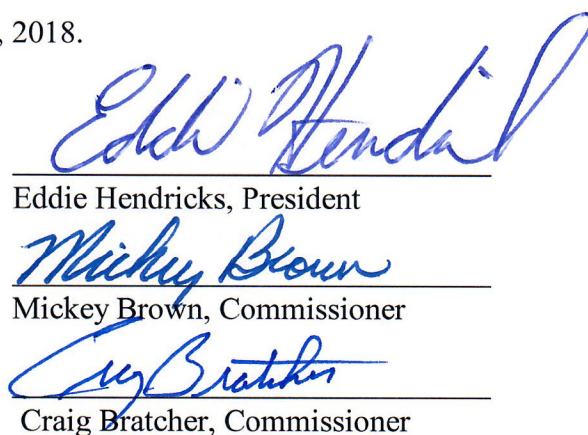 , 2018.
Eddie Hendricks
Eddie Hendricks, President
Mickey Brown
Mickey Brown, Commissioner
Craig Bratcher
Craig Bratcher, Commissioner